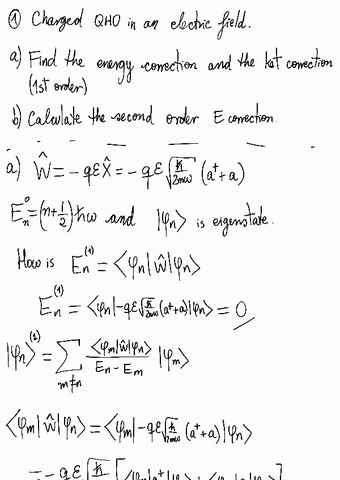 ① Charged QHO in an electric field.
a) Find the energy correction and the ket correction
(1st order)
b) Calculate the second order E correction.
a) Ŵ = -qƐX̂ = -qƐ√(ħ/2mω) (a⁺+a)
Eₙ⁰=(n+1/2)ħω and |φₙ⟩ is eigenstate.
How is Eₙ⁽¹⁾ = ⟨φₙ|Ŵ|φₙ⟩
Eₙ⁽¹⁾ = ⟨φₙ|-qƐ√(ħ/2mω)(a⁺+a)|φₙ⟩ = 0
|φₙ⟩⁽¹⁾ = ∑_{m≠n} ⟨φₘ|Ŵ|φₙ⟩/(Eₙ-Eₘ) |φₘ⟩
⟨φₘ|Ŵ|φₙ⟩ = ⟨φₘ|-qƐ√(ħ/2mω)(a⁺+a)|φₙ⟩
= -qƐ√ħ